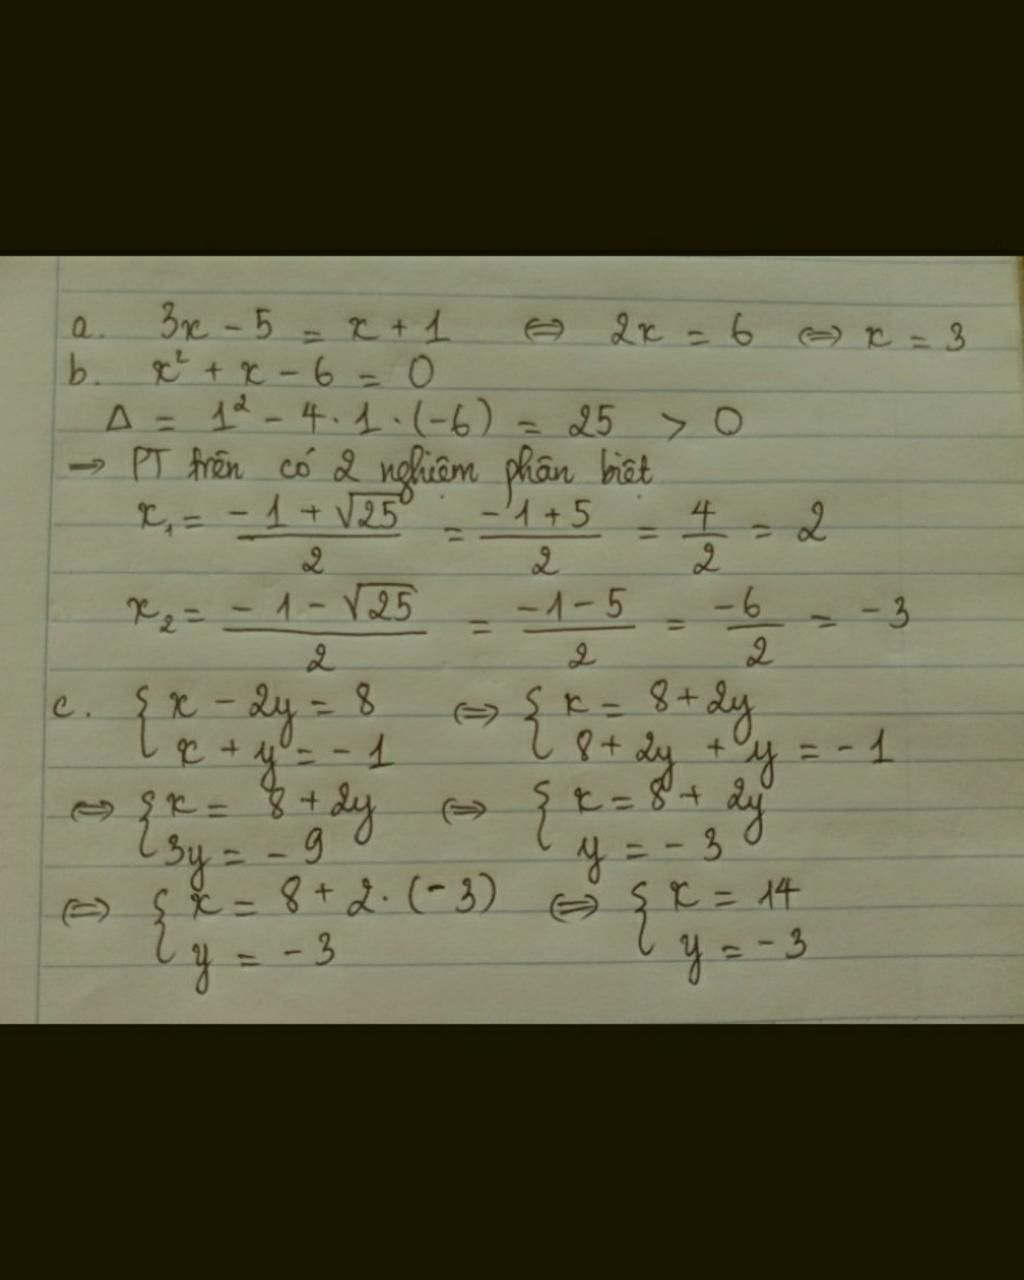 a. 3x - 5 = x + 1 ⇔ 2x = 6 ⇔ x = 3
b. x² + x - 6 = 0
Δ = 1² - 4 . 1 . (-6) = 25 > 0
→ PT trên có 2 nghiệm phân biệt
x₁ = (-1 + √25)/2 = (-1 + 5)/2 = 4/2 = 2
x₂ = (-1 - √25)/2 = (-1 - 5)/2 = -6/2 = -3
c. { x - 2y = 8 ⇔ { x = 8 + 2y
x + y = -1 8 + 2y + y = -1
⇔ { x = 8 + 2y ⇔ { x = 8 + 2y
3y = -9 y = -3
⇔ { x = 8 + 2 . (-3) ⇔ { x = 14
y = -3 y = -3